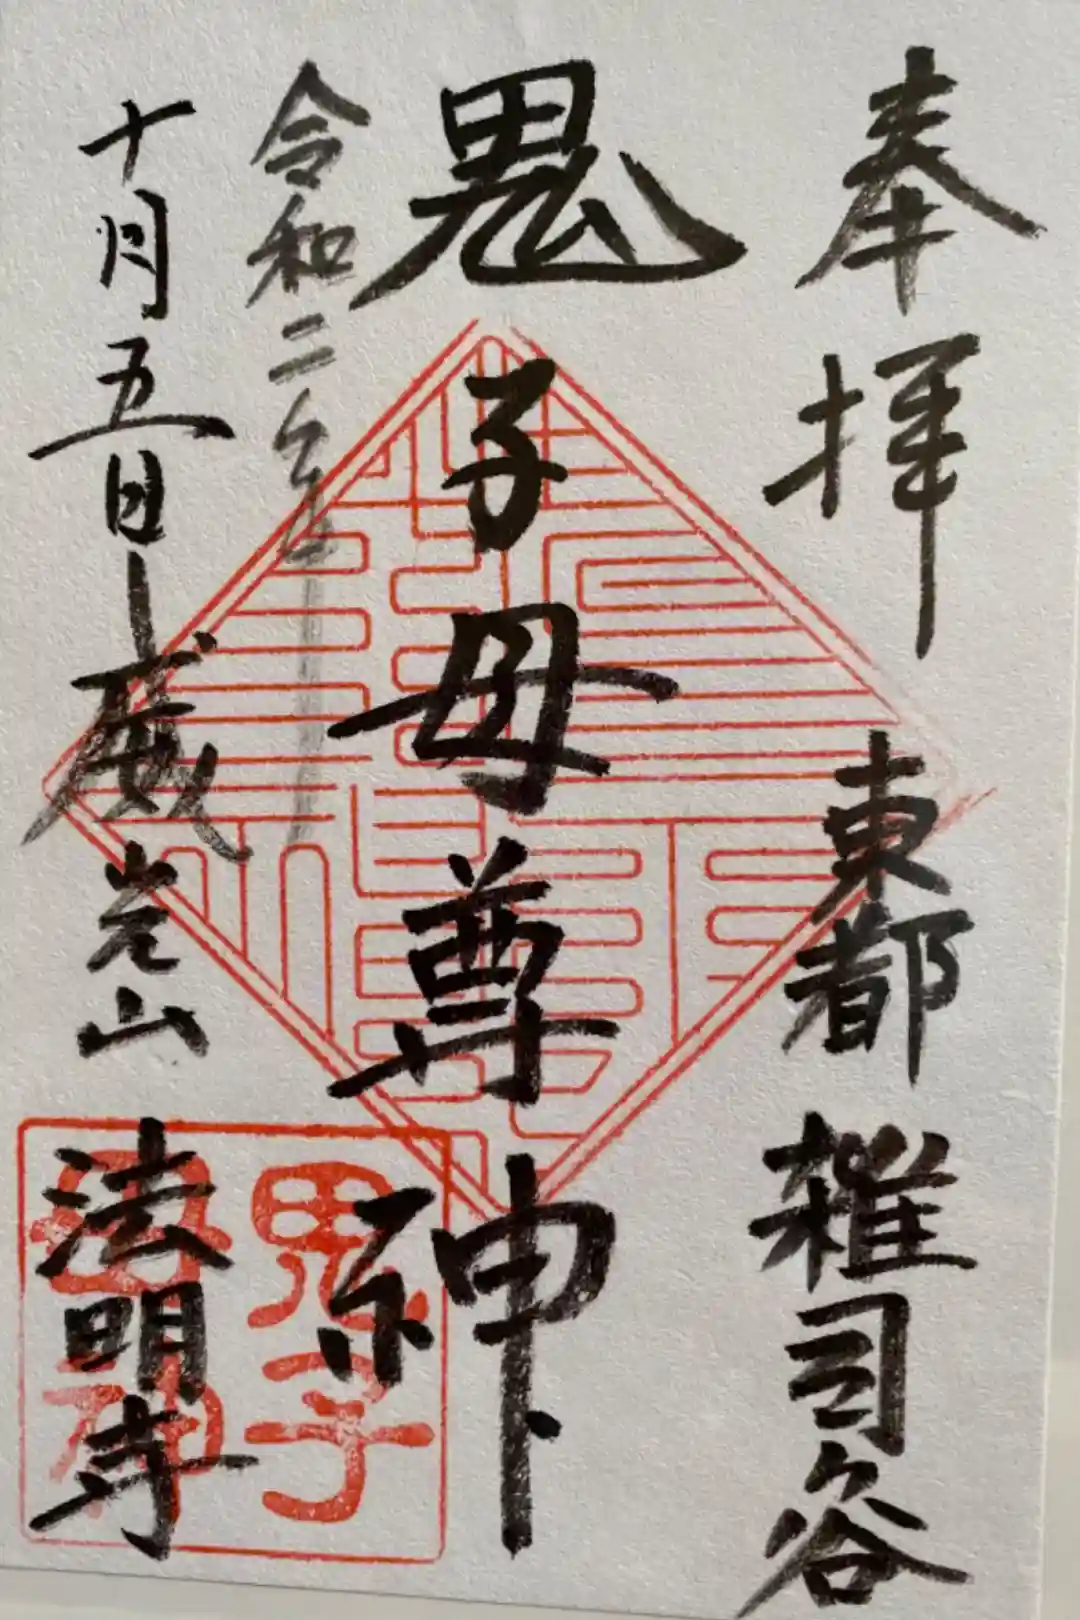 奉拝
東都
雑司谷
鬼子母尊神
令和二年
十月五日
威光山
法明寺
鬼子
母神